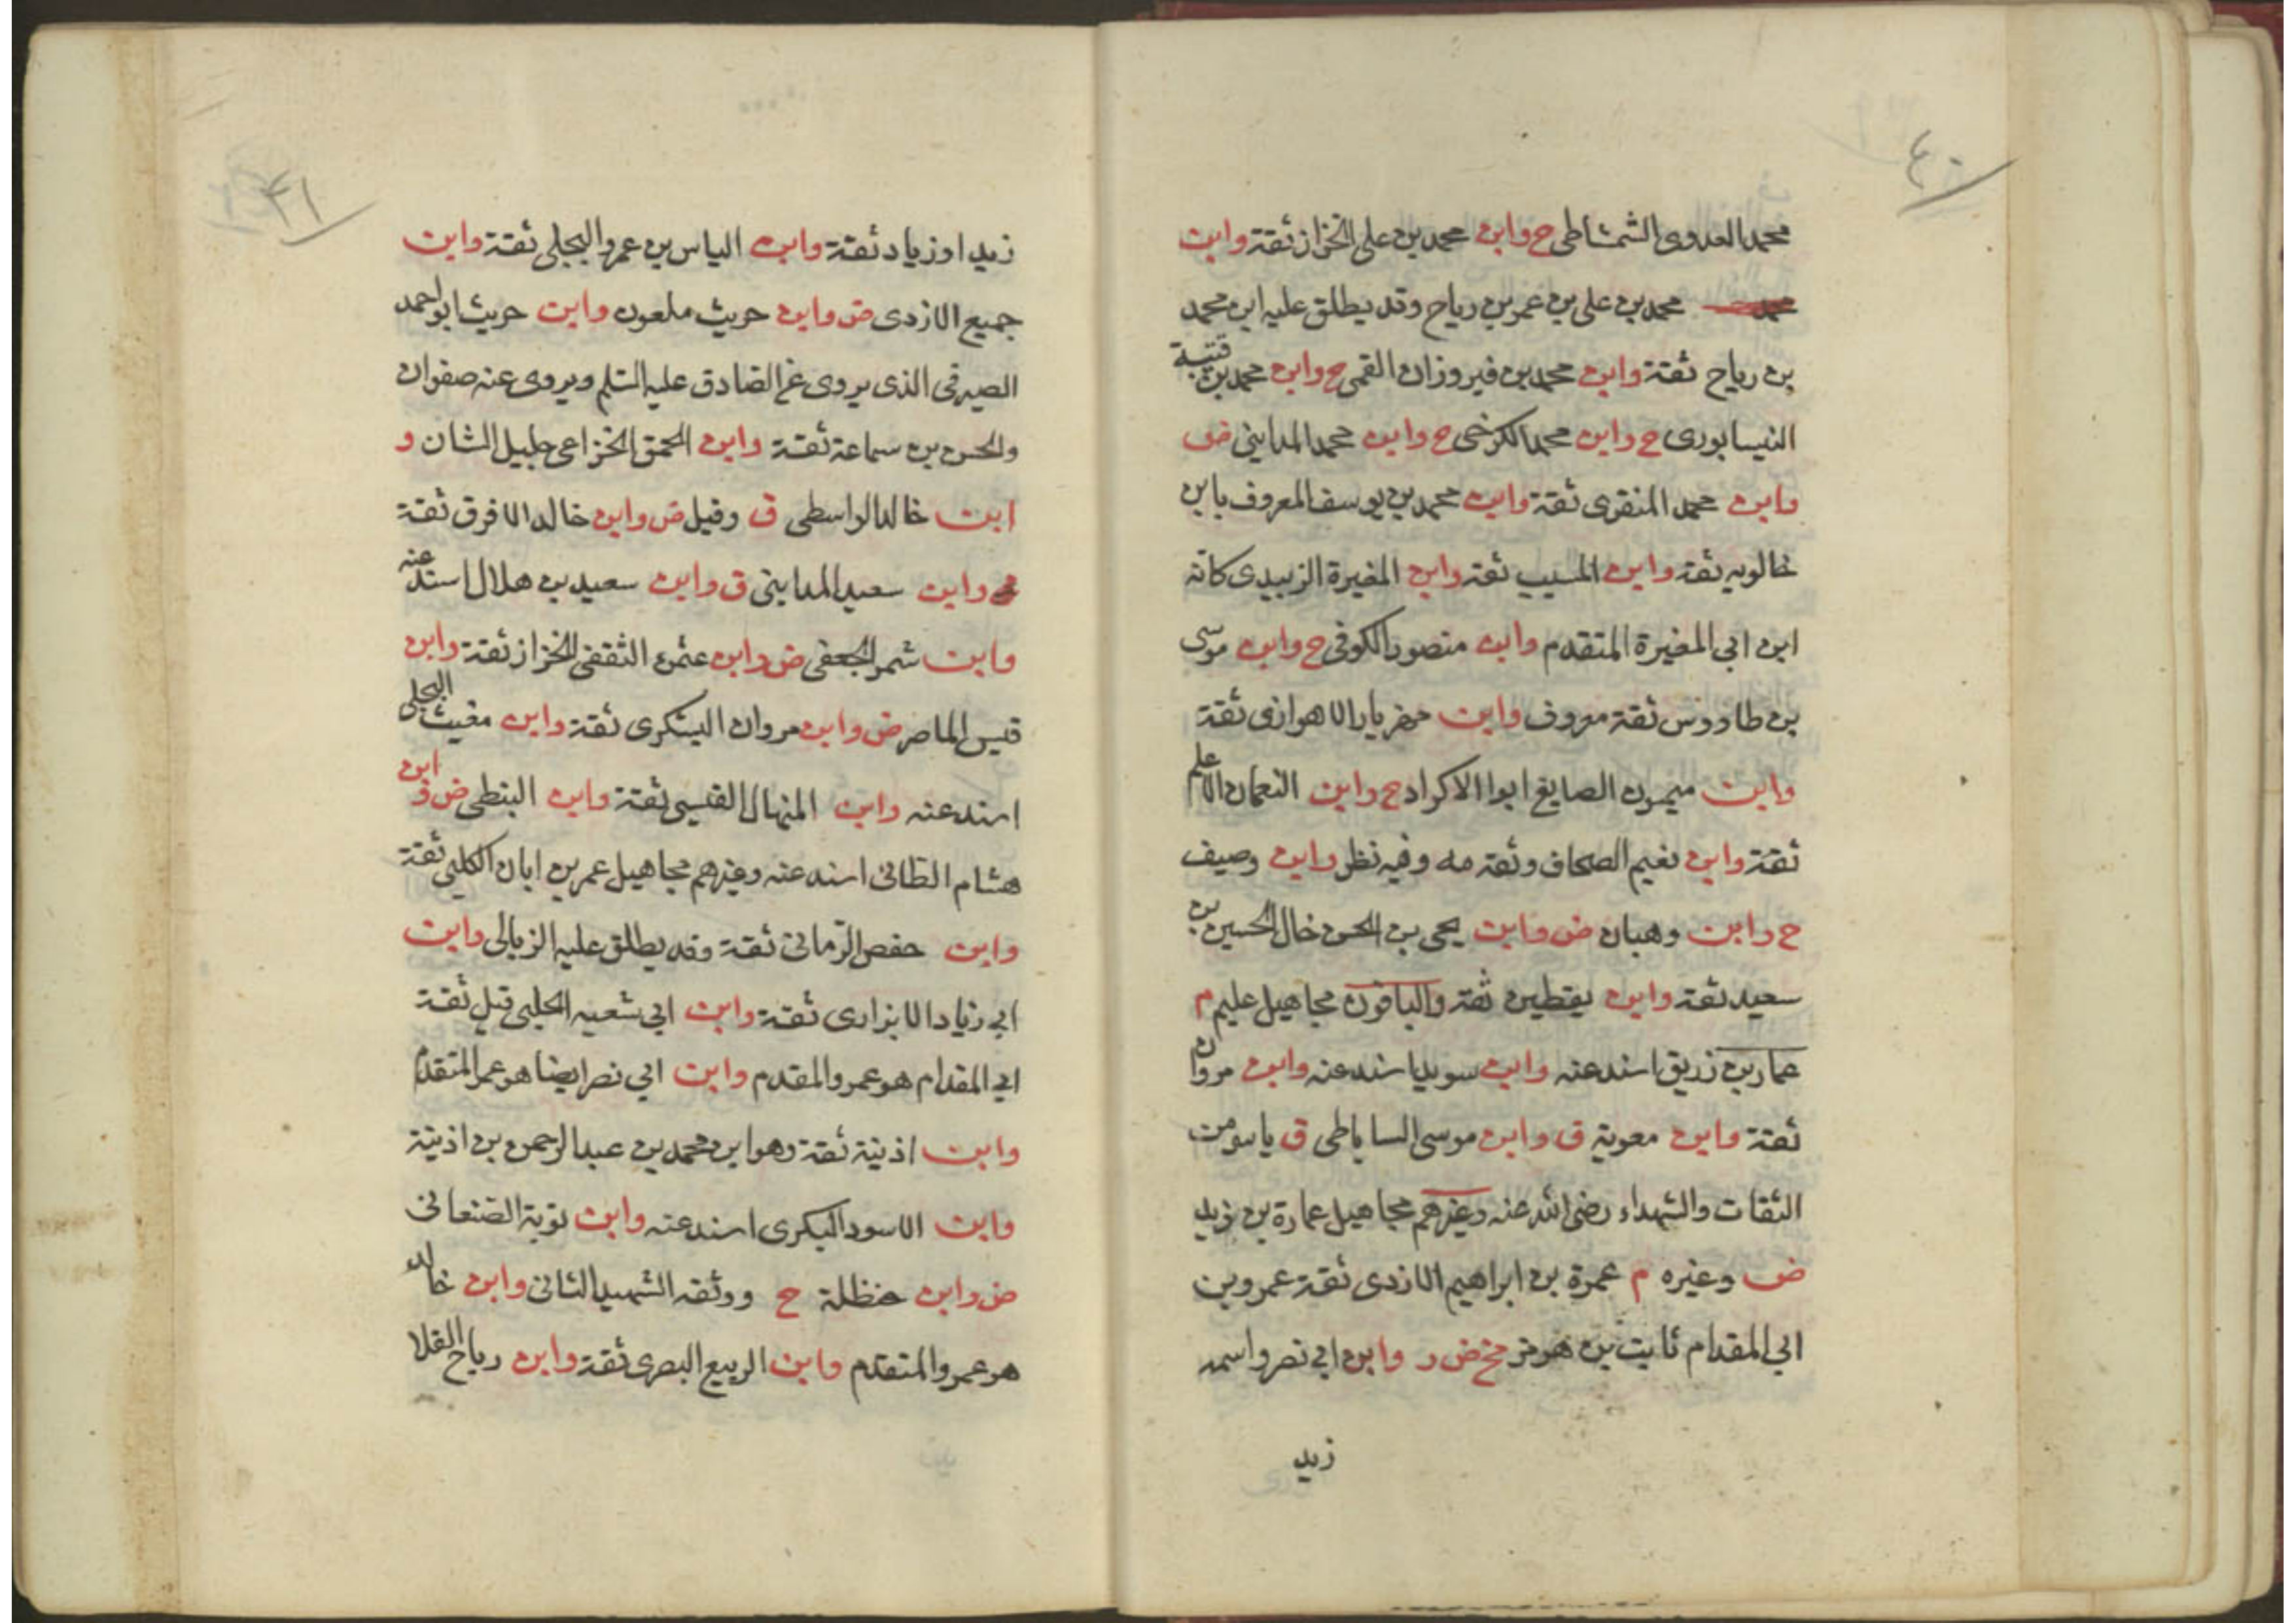 ٤٠
محمد العدوى الشمشاطى ح وابن محمد بن على الخزاز ثقة وابن
محمد بن على بن عمر بن رياح وقد يطلق عليه ابن محمد
بن رياح ثقة وابن محمد بن فيروزان القمى ح وابن محمد بن قتيبة
النيسابورى ح وابن محمد الكرخى ح وابن محمد المداينى ض
وابن محمد المنقرى ثقة وابن محمد بن يوسف المعروف بابن
خالويه ثقة وابن المسيب ثقة وابن المغيرة الزبيدى كانه
ابن ابى المغيرة المتقدم وابن منصور الكوفى ح وابن موسى
بن طاووس ثقة معروف وابن مهزيار الاهوازى ثقة
وابن ميمون الصايغ ابوا الاكراد ح وابن النعمان الاعلم
ثقة وابن نعيم الصحاف وثقه مه وفيه نظر وابن وصيف
ح وابن وهبان ض وابن يحى بن الحسن خال الحسين بن
سعيد ثقة وابن يقطين ثقة والباقون مجاهيل عليم م
عمار بن زريق اسند عنه وابن سويد اسند عنه وابن مروان
ثقة وابن معوية ق وابن موسى الساباطى ق ياسر من
الثقات والشهداء رضى الله عنه وغيرهم مجاهيل عمارة بن زيد
ض وغيره م عمرة بن ابراهيم الازدى ثقة عمرو بن
ابى المقدام ثابت بن هرمز مخ ض ر وابن ابى نصر واسمه
زيد
٤١
زيد او زياد ثقة وابن الياس بن عمرو البجلى ثقة وابن
جميع الازدى ض وابن حريث ملعون وابن حريث ابو احمد
الصيرفى الذى يروى عن الصادق عليه السلم ويروى عنه صفوان
والحسن بن سماعة ثقة وابن الحمق الخزاعى جليل الشان و
ابن خالد الواسطى ق وقيل ض وابن خالد الافرق ثقة
وابن سعيد المداينى ق وابن سعيد بن هلال اسند عنه
وابن شمر الجعفى ض وابن عثمن الثقفى الخزاز ثقة وابن
قيس الماصر ض وابن مروان اليشكرى ثقة وابن مغيث البجلى
اسند عنه وابن المنهال القيسى ثقة وابن النبطى ض وابن
هشام الطائى اسند عنه وغيرهم مجاهيل عمر بن ابان الكلبى ثقة
وابن حفص الرمانى ثقة وقد يطلق عليه الزبالى وابن
ابى زياد الابزارى ثقة وابن ابى شعبه الحلبى قيل ثقة
ابى المقدام هو عمرو المقدم وابن ابى نصر ايضا هو عمر المتقدم
وابن اذنية ثقة وهو ابن محمد بن عبد الرحمن بن اذنية
وابن الاسود البكرى اسند عنه وابن توبة الصنعانى
ض وابن حنظلة ح ووثقه الشهيد الثانى وابن خالد
هو عمرو المتقدم وابن الربيع البصرى ثقة وابن رياح القلا